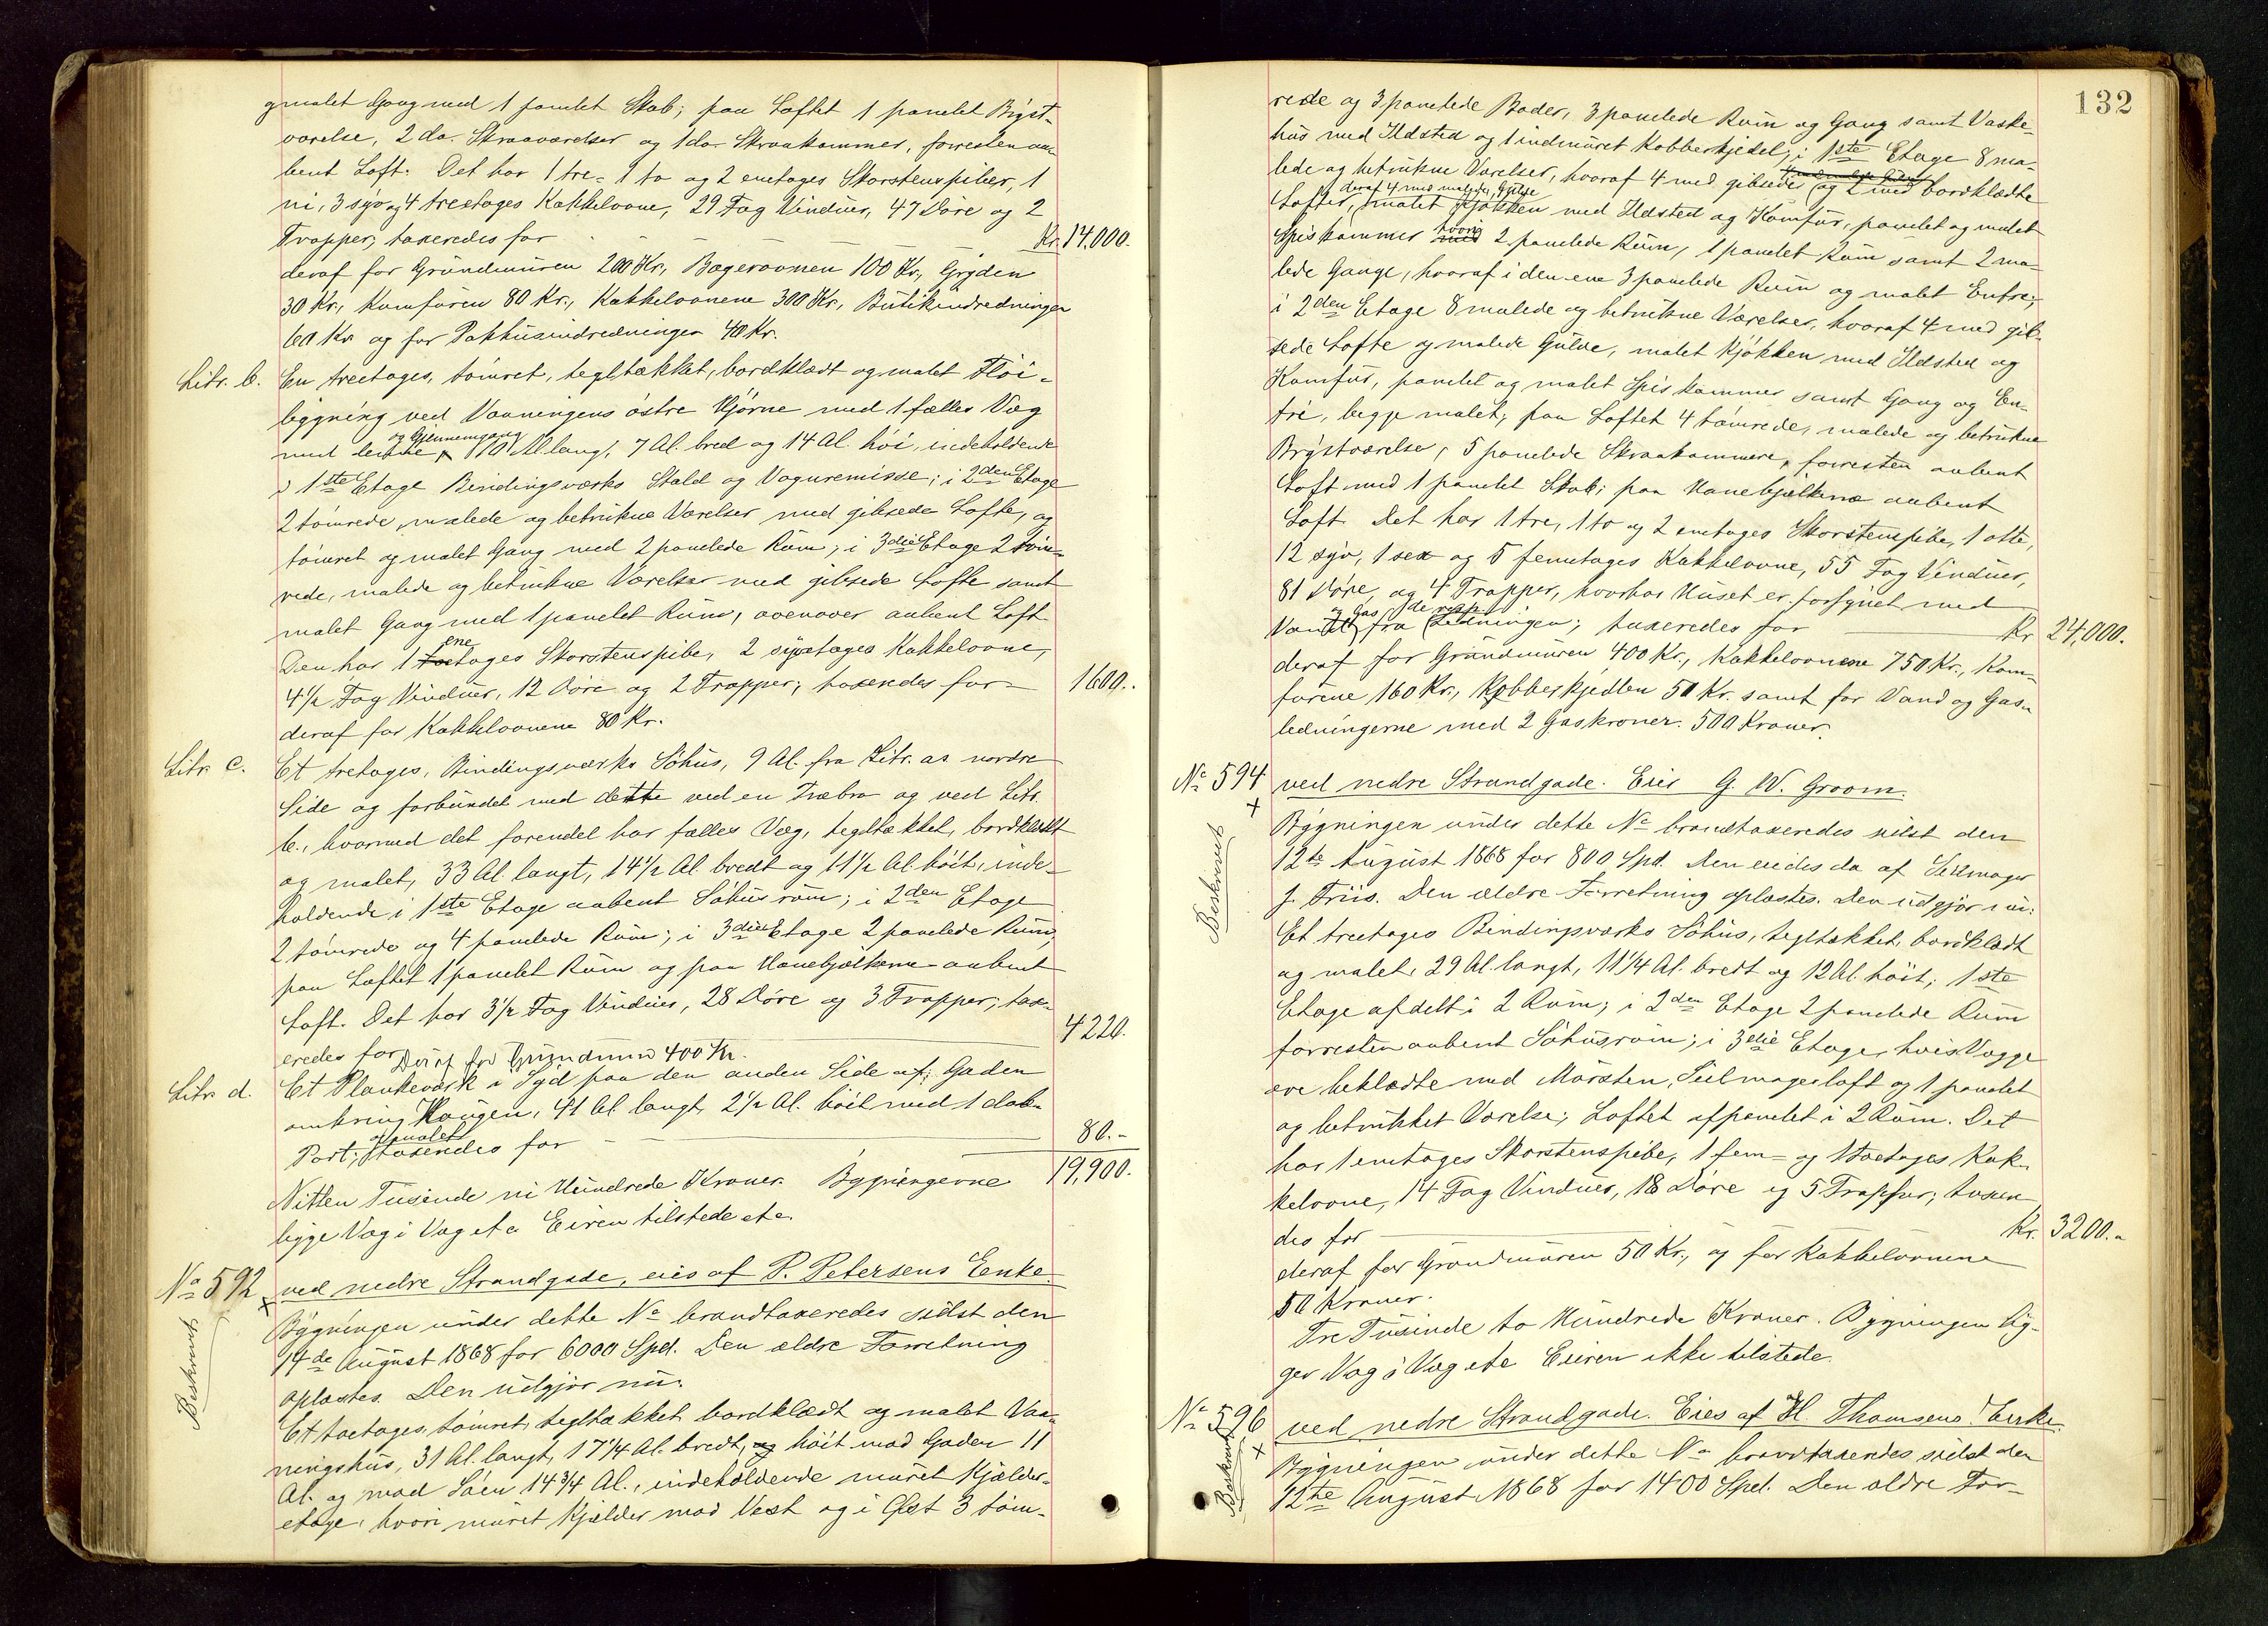 gmalet Gang med 1 panelet Skab; paa Loftet 1 panelet Bryst-
værelse, 2 do. Skraaværelser og 1 do. Skraakammer, forresten aa-
bent Loft. Det har 1 tre- 1 to og 2 enetages Skorstenspiber, 1
ni, 3 syv og 4 treetages Kakkelovne, 29 Fag Vinduer, 47 Döre og 2
Trapper; taxeredes for Kr. 14,000.
deraf for Grundmuren 200 Kr., Bagerovnen 100 Kr., Gryden
30 Kr., Komfuren 80 Kr., Kakkelovnene 300 Kr., Butikindredningen
60 Kr. og for Pakhusindredningen 40 Kr.
Litr. b. En treetages, tömret, tegltækket, bordklædt og malet Flöi-
bygning ved Vaaningens östre Hjörne med 1 fælles Væg
og Gjennemgang
med denne, 10 Al. lang, 7 Al. bred og 14 Al. höi, indeholdende
i 1ste Etage Bindingsværks Stald og Vognremisse; i 2den Etage
2 tömrede, malede og betrukne Værelser med gibsede Lofte, og
tömret og malet Gang med 2 panelede Rum; i 3die Etage 2 töm-
rede, malede og betrukne Værelser med gibsede Lofte samt
malet Gang med 1 panelet Rum, ovenover aabent Loft.
ene
Den har 1 toetages Skorstenspibe, 2 syvetages Kakkelovne,
4 1/2 Fag Vinduer, 12 Döre og 2 Trapper; taxeredes for 1600.
deraf for Kakkelovnene 80 Kr.
Litr. c. Et tretages, Bindingsværks Söhus, 9 Al. fra Litr. as nordre
Side og forbundet med dette ved en Træbro og ved Litr.
b., hvormed det forendel har fælles Væg, tegltækket, bordklædt
og malet, 33 Al. langt, 14 1/2 Al. bredt og 11 1/2 Al. höit, inde-
holdende i 1ste Etage aabent Söhusrum; i 2den Etage
2 tömrede og 4 panelede Rum; i 3die Etage 2 panelede Rum,
paa Loftet 1 panelet Rum og paa Hanebjælkerne aabent
Loft. Det har 3 1/2 Fag Vinduer, 28 Döre og 3 Trapper; tax-
eredes for 4220.
Deraf for Grundmur 400 Kr.
Litr. d. Et Plankeværk i Syd paa den anden Side af Gaden
omkring Haugen, 41 Al. langt, 2 1/2 Al. höit med 1 dob.
og malet
Port; taxeredes for 80.-
19,900.
Nitten Tusinde ni Hundrede Kroner. Bygningerne
ligge Væg i Væg etc. Eieren tilstede etc.
No 592 ved nedre Strandgade, eies af P. Petersens Enke.
Beskrevet
Bygningen under dette No brandtaxeredes sidst den
14de August 1868 for 6000 Spd. Den ældre Forretning
oplæstes. Den udgjör nu:
Et toetages, tömret, tegltækket bordklædt og malet Vaa-
ningshus, 31 Al. langt, 17 1/4 Al. bredt, og höit mod Gaden 11
Al. og mod Söen 14 3/4 Al., indeholdende muret Kjælder-
etage, hvori muret Kjelder mod Vest og i Öst 3 töm-
132
rede og 3 panelede Boder, 3 panelede Rum og Gang samt Vaske-
hus med Ildsted og 1 indmuret Kobberkjedel; i 1ste Etage 8 ma-
lede og betrukne Værelser, hvoraf 4 med gibsede og 2 med bordklædte
deraf 4 med malede Gulve
Lofter, malet Kjökken med Ildsted og Komfur, panelet og malet
hvori
Spiskammer med 2 panelede Rum, 1 panelet Rum samt 2 ma-
lede Gange, hvoraf i den ene 3 panelede Rum og malet Entre;
i 2den Etage 8 malede og betrukne Værelser, hvoraf 4 med gib-
sede Lofte og malede Gulve, malet Kjökken med Ildsted og
Komfur, panelet og malet Spiskammer samt Gang og En-
tré, begge malet; paa Loftet 4 tömrede, malede og betrukne
Brystværelse, 5 panelede Skraakammere, forresten aabent
Loft med 1 panelet Skab; paa Hanebjælkerne aabent
Loft. Det har 1 tre, 1 to og 2 enetages Skorstenspibe, 1 otte,
12 syv, 1 sex og 5 femetages Kakkelovne, 55 Fag Vinduer,
81 Döre, og 4 Trapper, hvorhos Huset er forsynet med
og Gas de resp.
Vand fra Ledningen; taxeredes for Kr. 24,000.
deraf for Grundmuren 400 Kr., Kakkelovnene 750 Kr., Kom-
furene 160 Kr., Kobberkjedlen 50 Kr. samt for Vand og Gas-
ledningerne med 2 Gaskroner. 500 Kroner.
No 594 ved nedre Strandgade. Eier G. W. Groom.
Beskrevet
Bygningen under dette No brandtaxeredes sidst den
12te August 1868 for 800 Spd. Den eiedes da af Seilmager
J. Friis. Den ældre Forretning oplæstes. Den udgjör nu:
Et treetages Bindingsværks Söhus, tegltækket, bordklædt
og malet, 29 Al. langt, 11 1/4 Al. bredt og 12 Al. höit; 1ste
Etage afdelt i 2 Rum; i 2den Etage 2 panelede Rum
forresten aabent Söhusrum; i 3die Etage, hvis Vægge
ere beklædte med Mursten, Seilmagerloft og 1 panelet
og betrukket Værelse; Loftet afpanelet i 2 Rum. Det
har 1 enetages Skorstenspibe, 1 fem- og 1 toetages Kak-
kelovne, 14 Fag Vinduer, 18 Döre og 5 Trapper; taxere-
des for Kr. 3200.-
deraf for Grundmuren 50 Kr., og for Kakkelovnene
50 Kroner.
Tre Tusinde to Hundrede Kroner. Bygningen lig-
ger Væg i Væg etc. Eieren ikke tilstede.
No 596 ved nedre Strandgade. Eies af H. Thomsens Enke.
Beskrevet
Bygningen under dette No brandtaxeredes sidst den
12te August 1868 for 1400 Spd. Den ældre For-